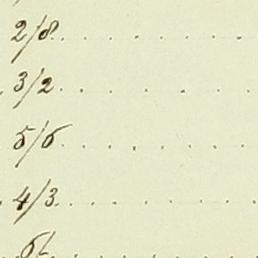 2/8
3/2
5/6
4/3
6/